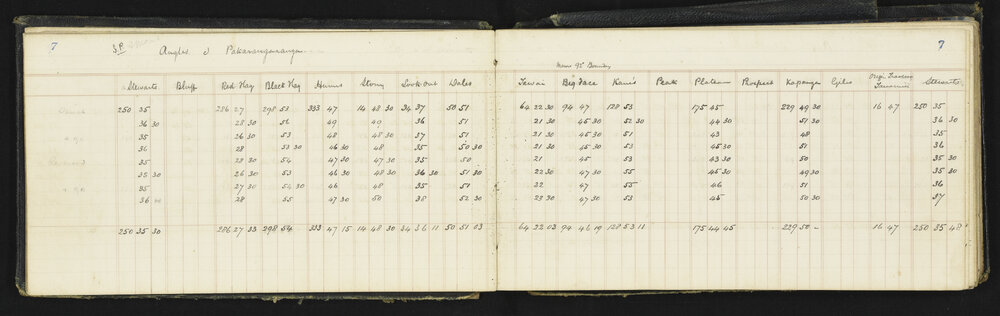 7 S.P. Angles @ Pakaraugaranga 7
Meuw 9° Boundary
Stewarts Bluff Red Hay Black Hay Heims Stony Look Out Dales Tewai Big Face Kani's Peak Plateau Prospect Kaponga Egiles Orig. Traverse Stewarts
250 35 286 27 298 53 333 47 14 48 30 34 37 50 51 64 22 30 94 47 128 53 175 45 229 49 30 16 47 250 35
36 30 28 30 52 49 49 36 51 21 30 45 30 52 30 44 30 51 30 36 30
35 26 30 53 48 48 30 37 51 21 30 45 30 51 43 48 35
36 28 53 30 46 30 48 35 50 30 21 30 45 30 53 45 30 51 36
35 28 30 54 47 30 47 30 35 50 21 45 53 43 30 50 35 30
35 30 26 30 53 46 30 48 30 36 30 51 30 22 30 47 30 55 45 30 49 30 35 30
35 27 30 54 30 46 48 35 51 22 47 55 46 51 36
36 28 55 47 30 50 38 52 30 23 30 47 30 53 45 50 30 37
250 35 30 286 27 33 298 54 333 47 15 14 48 30 34 36 11 50 51 03 64 22 03 94 46 19 128 53 11 175 44 45 229 50 – 16 47 250 35 48